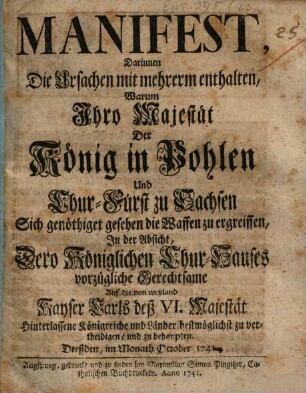 MANIFEST,
Darinnen
Die Ursachen mit mehrerm enthalten,
Warum
Ihro Majestät
Der
König in Pohlen
Und
Chur-Fürst zu Sachsen
Sich genöthiget gesehen die Waffen zu ergreiffen,
In der Absicht,
Dero Königlichen Chur-Hauses
vorzügliche Gerechtsame
Auf die von weyland
Kayser Carls deß VI. Majestät
Hinterlassene Königreiche und Länder bestmöglichst zu ver-
theidigen, und zu behaupten.
Dreßden, im Monath October 1741
Augspurg, gedruckt und zu finden bey Maximilian Simon Pingitzer, Ca-
tholischen Buchdruckern. Anno 1741.
25